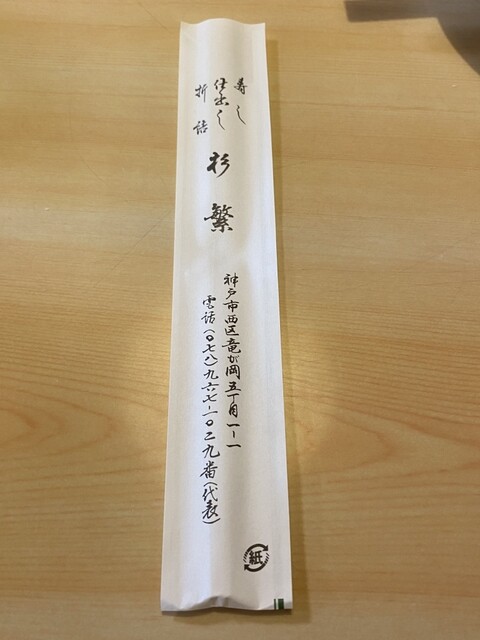 寿し
仕出し
折詰
杉繁
神戸市西区竜が岡五丁目一ー一
電話(〇七八)九六七ー一〇二九番(代表)
紙